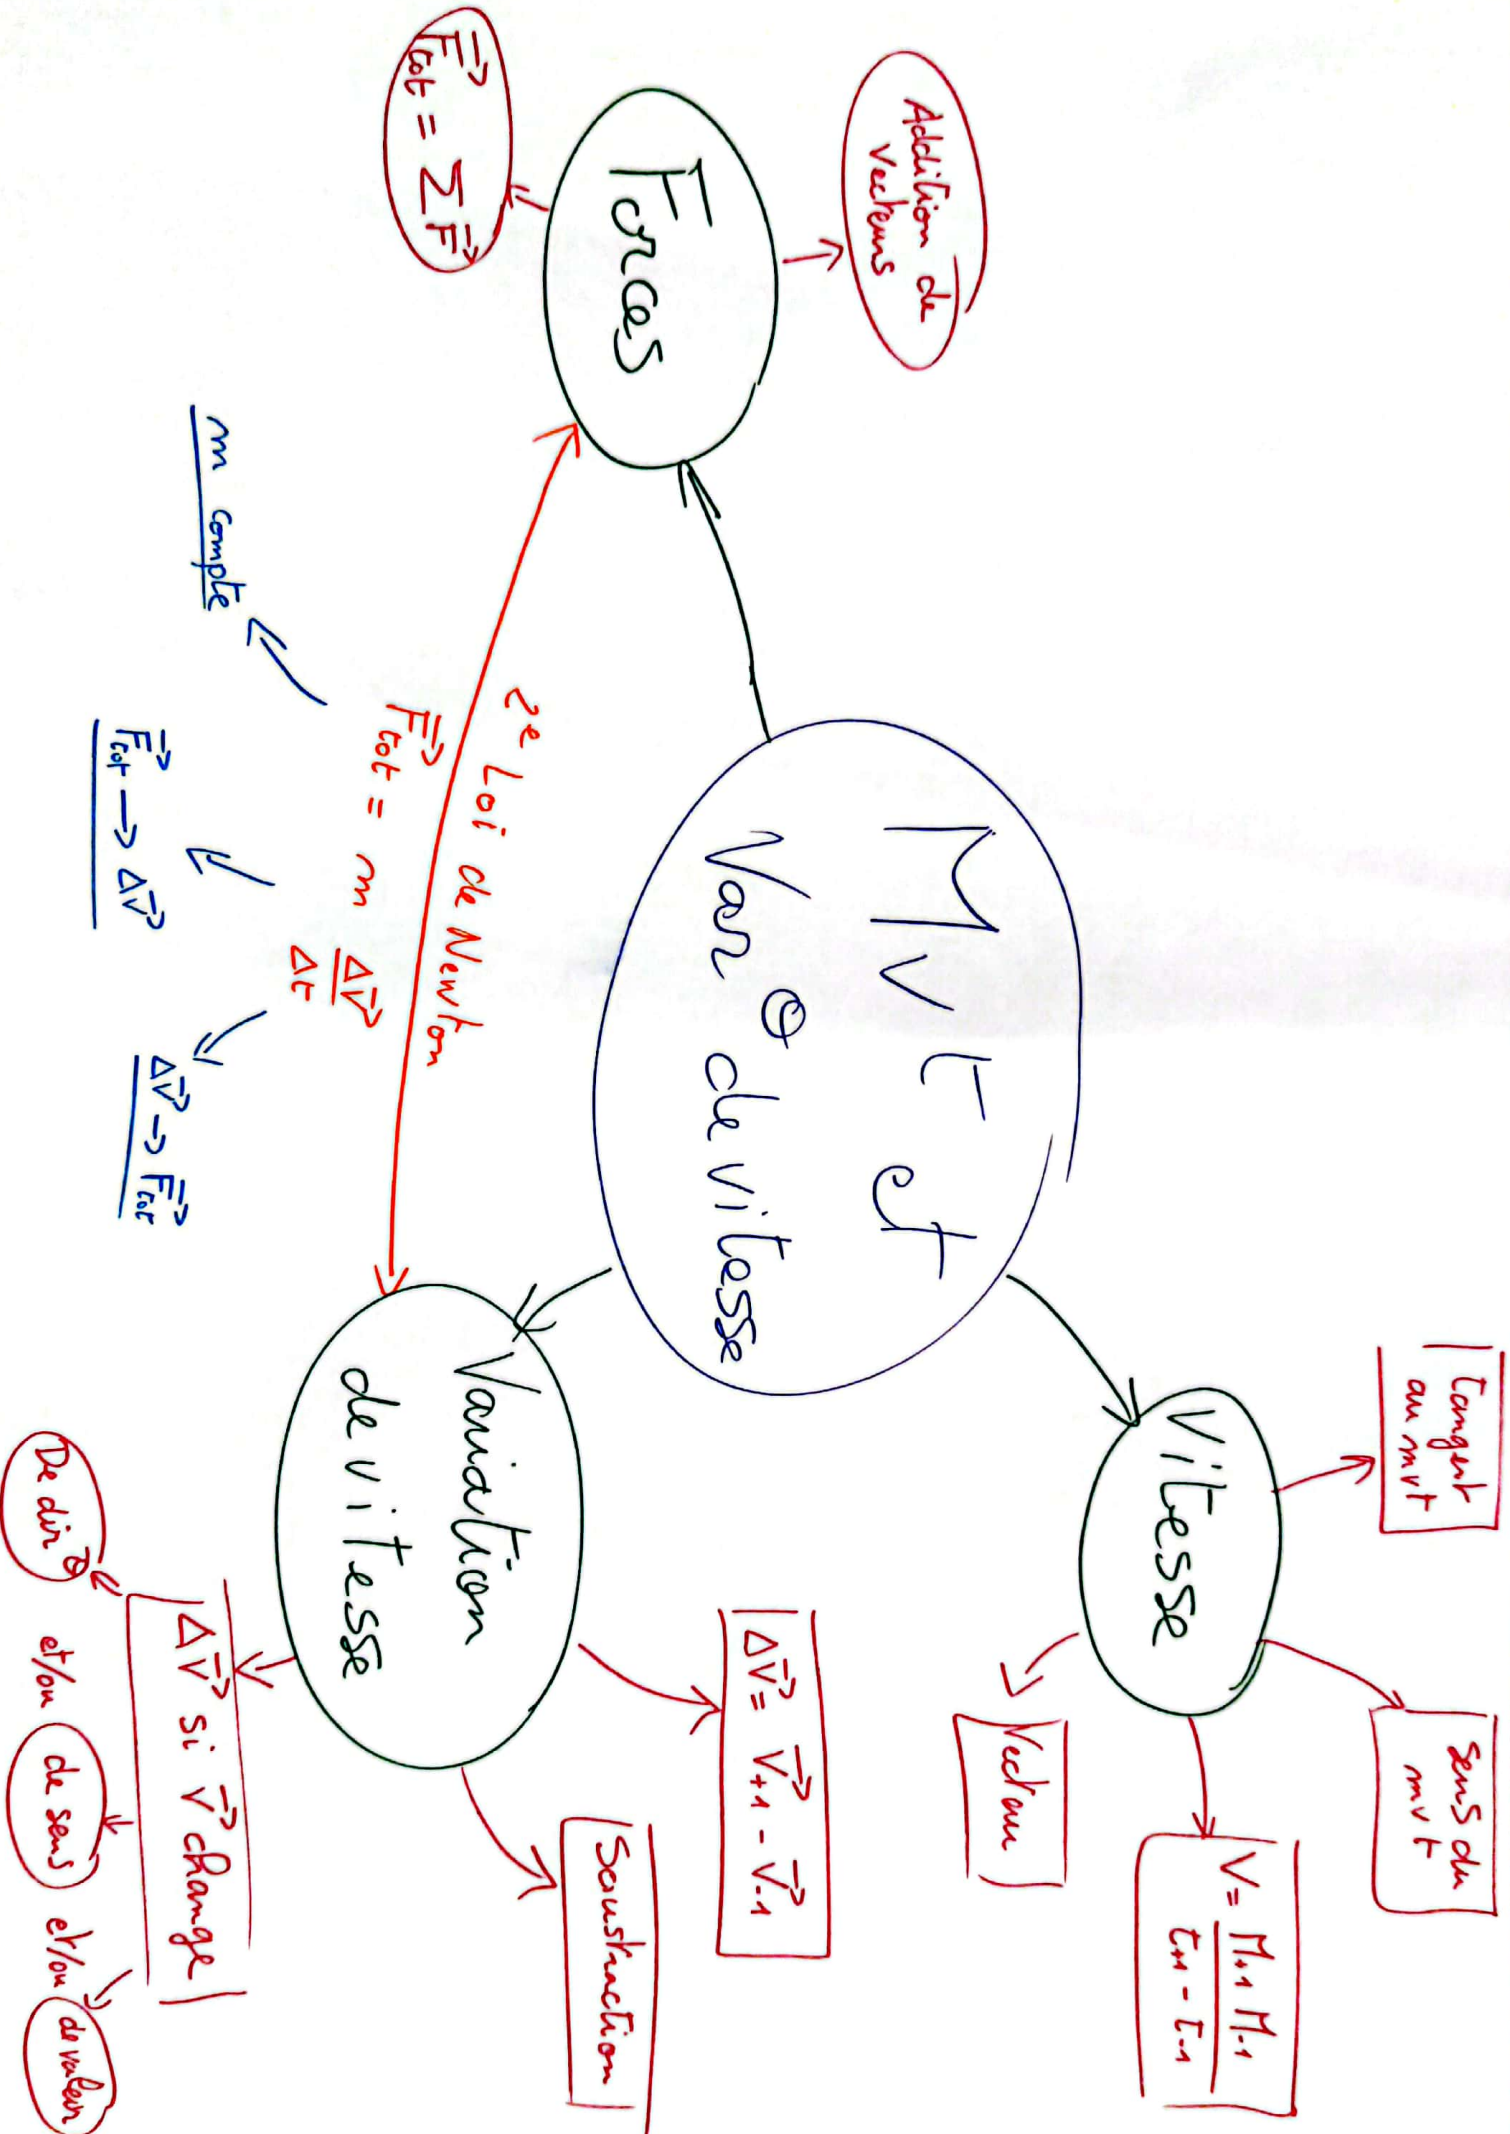 Mvt et
Var° de vitesse
Forces
Addition de
vecteurs
F⃗tot = Σ F⃗
2e Loi de Newton
F⃗tot = m Δv⃗
Δt
m compte
F⃗tot → Δv⃗
Δv⃗ → F⃗tot
Vitesse
tangent
au mvt
sens du
mvt
V = M+1 M-1
t+1 - t-1
Vecteur
Variation
de vitesse
Δv⃗ = v⃗+1 - v⃗-1
Soustraction
Δv⃗ si v⃗ change
De dir° et/ou de sens et/ou de valeur